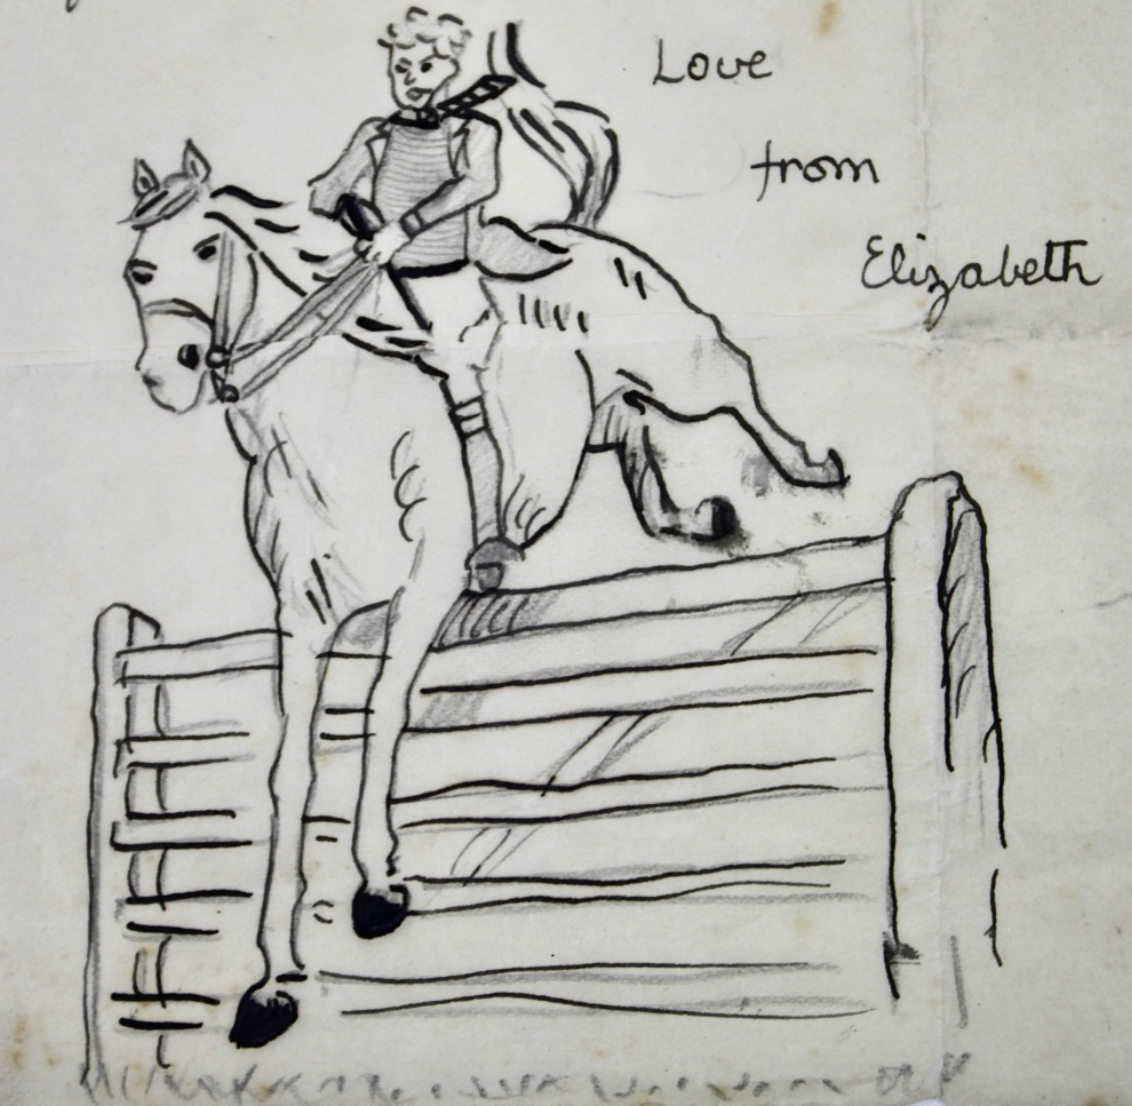 Love
from
Elizabeth